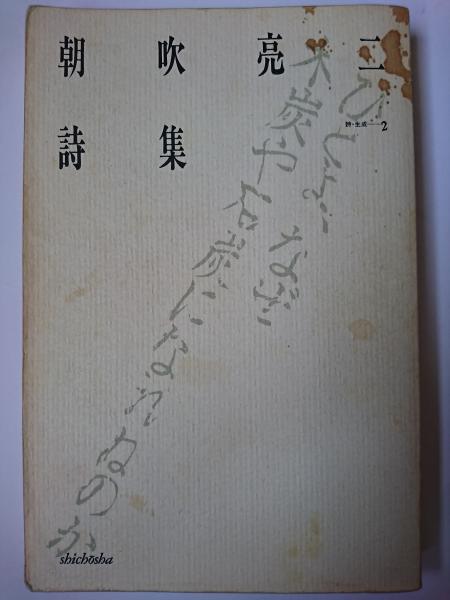 朝吹亮二
詩集
詩・生成——2
なぜ
木炭や石炭になれぬのか
shichōsha